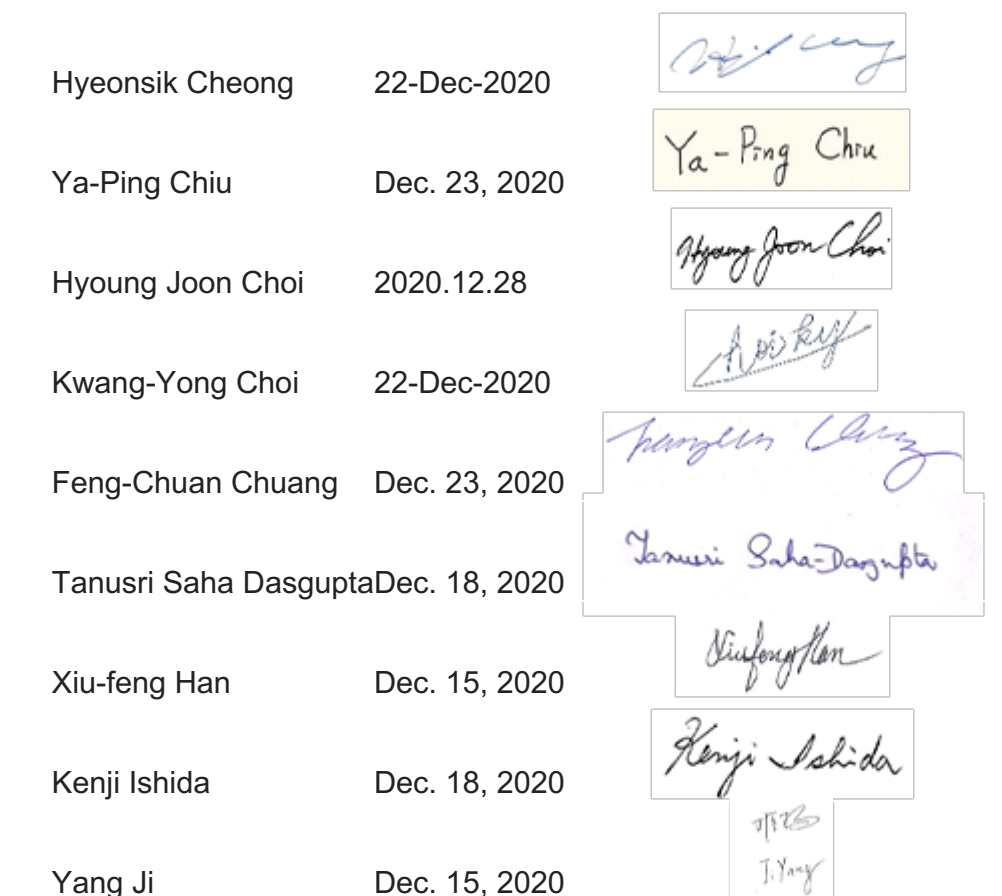 Hyeonsik Cheong 22-Dec-2020
Ya-Ping Chiu Dec. 23, 2020 Ya-Ping Chiu
Hyoung Joon Choi 2020.12.28 Hyoung Joon Choi
Kwang-Yong Choi 22-Dec-2020
Feng-Chuan Chuang Dec. 23, 2020
Tanusri Saha Dasgupta Dec. 18, 2020 Tanusri Saha-Dasgupta
Xiu-feng Han Dec. 15, 2020 Xiufeng Han
Kenji Ishida Dec. 18, 2020 Kenji Ishida
Yang Ji Dec. 15, 2020 J. Yang